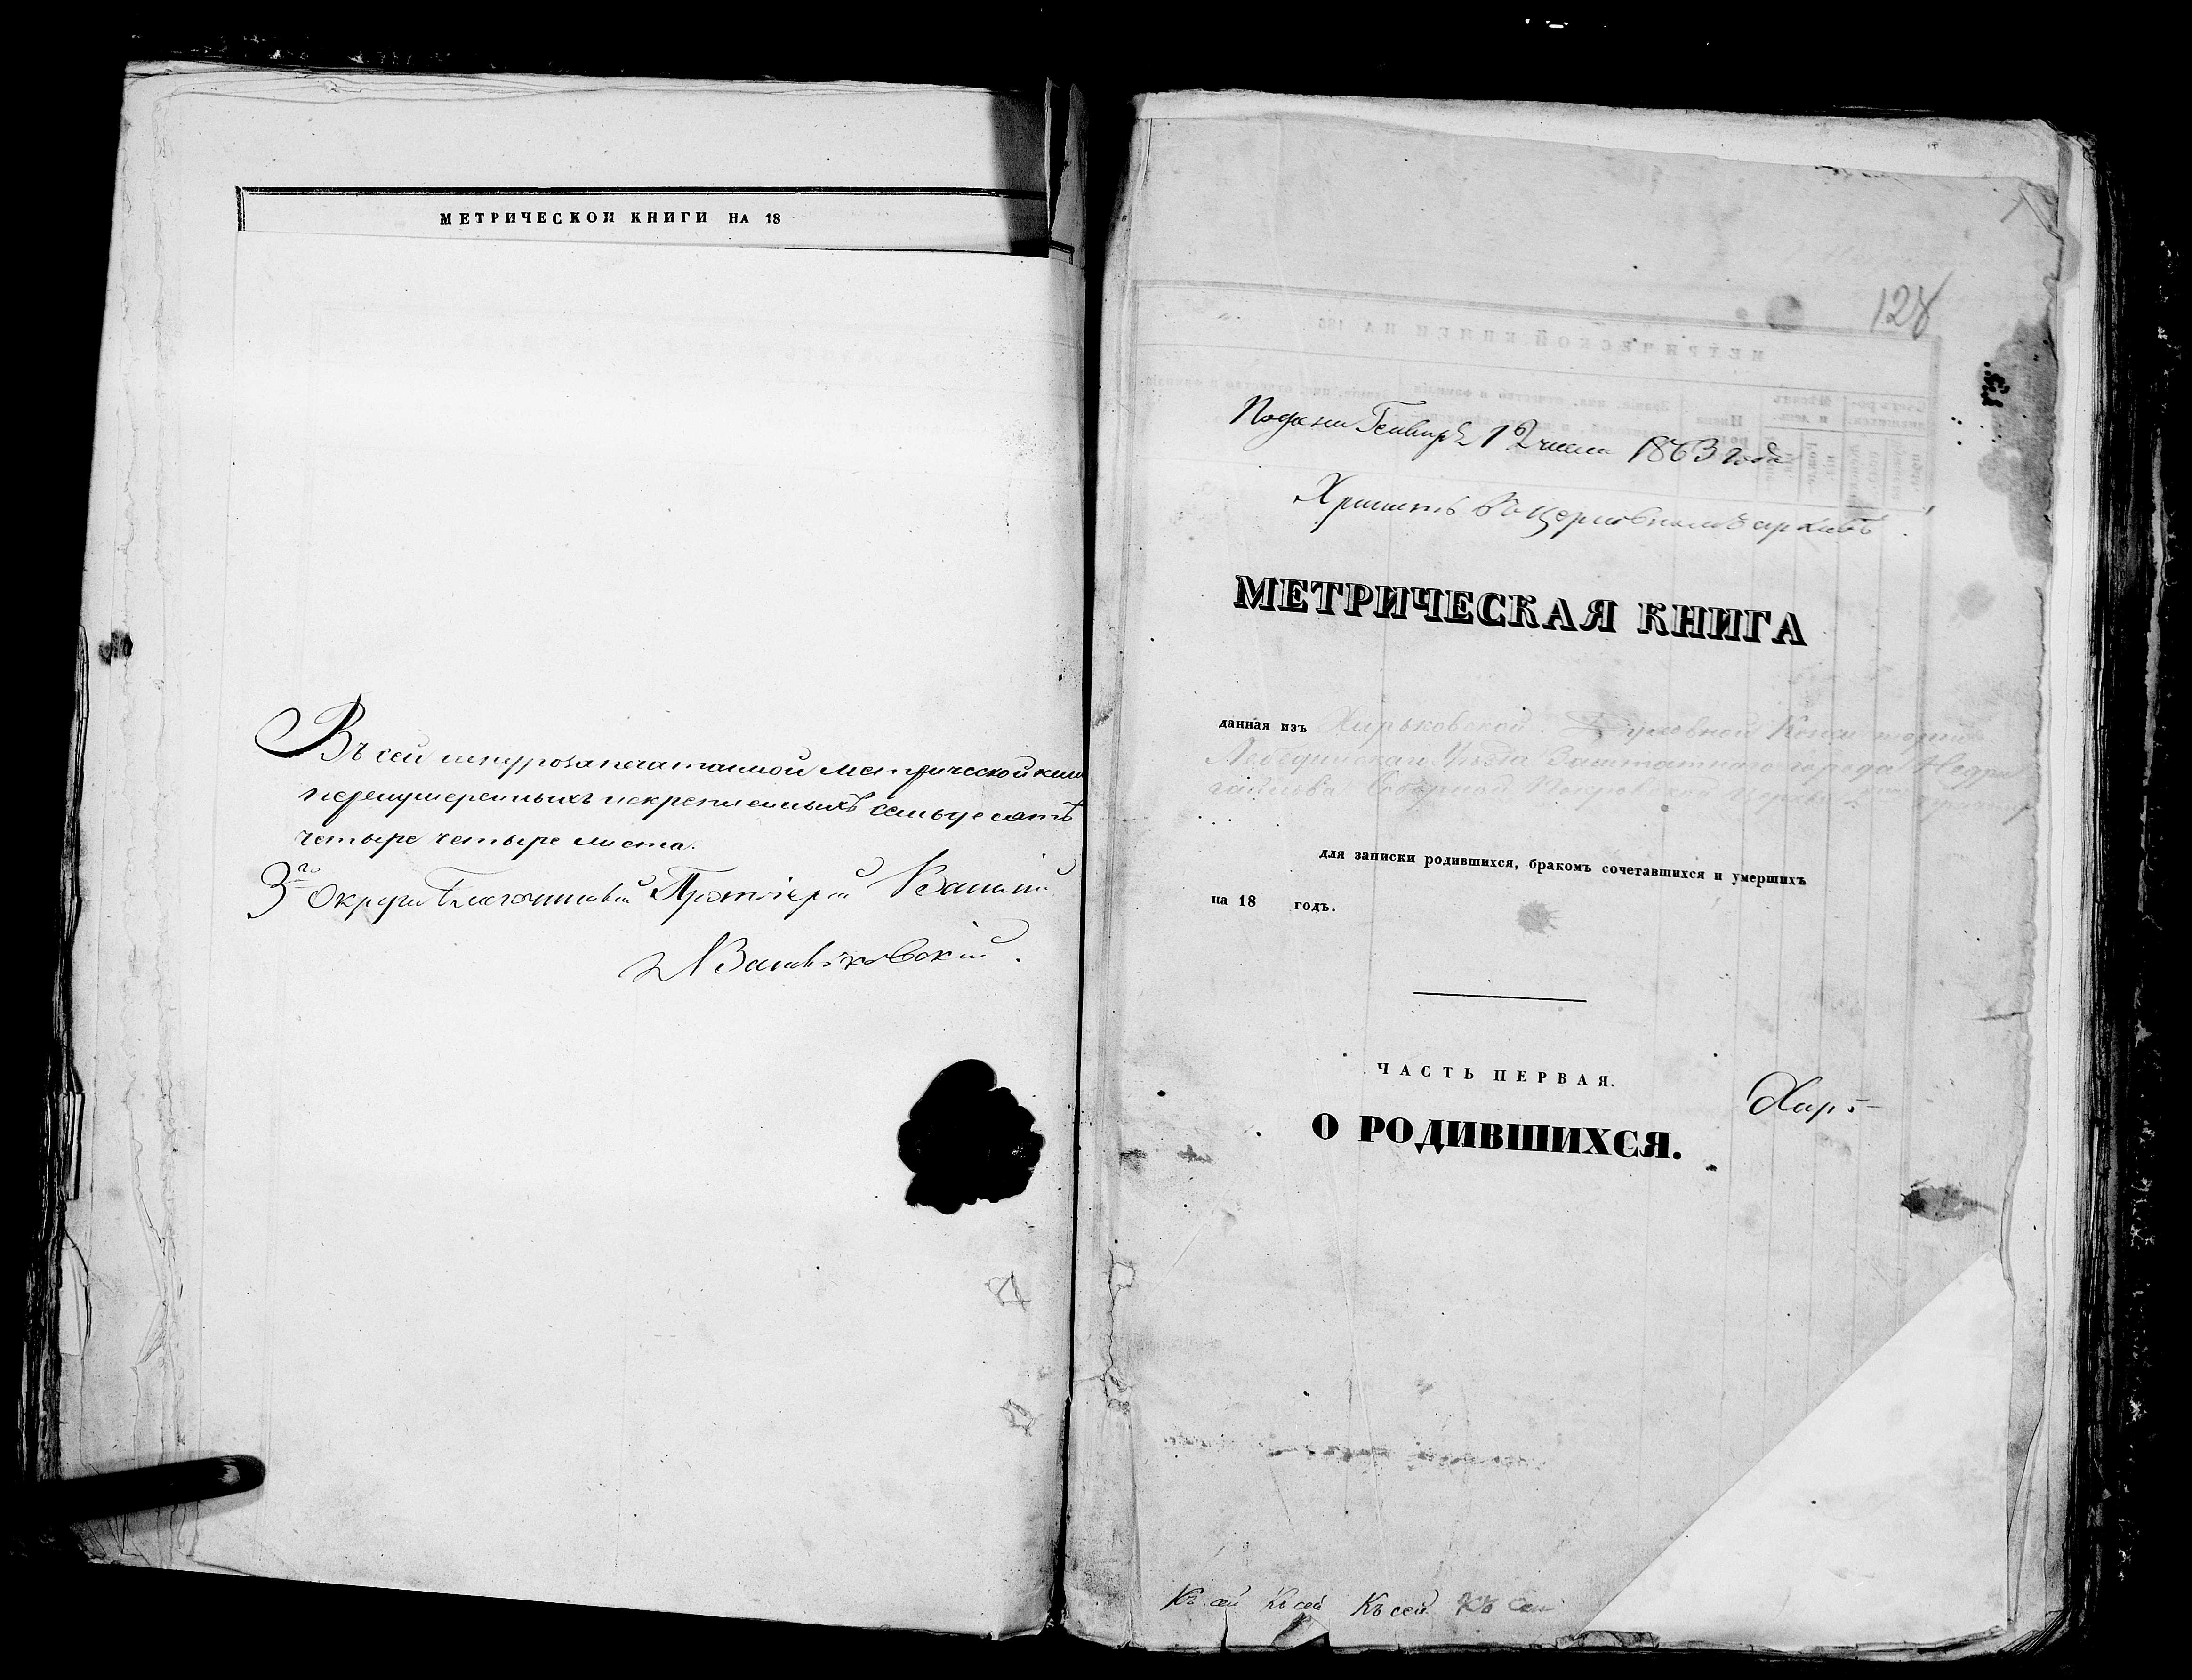 МЕТРИЧЕСКОЙ КНИГИ НА 18
Въ сей шнурозапечатанной метрической книг
перенумеренныхъ искрепленныхъ семьдесятъ
четыре четыре листа.
3го Округа Благочинный Протоіерей Василій
128
Подана Генваря 12 числа 1863 года
Хранить въ церковномъ архивѣ
МЕТРИЧЕСКАЯ КНИГА
данная изъ Харьковской Духовной Консисторіи
Лебединскаго Уѣзда Заштатнаго города Недри
гайлова Соборной Покровской Церкви
для записки родившихся, бракомъ сочетавшихся и умершихъ
на 18 годъ.
ЧАСТЬ ПЕРВАЯ.
Харь
О РОДИВШИХСЯ.
Къ сей Къ сей Къ сей Къ сей